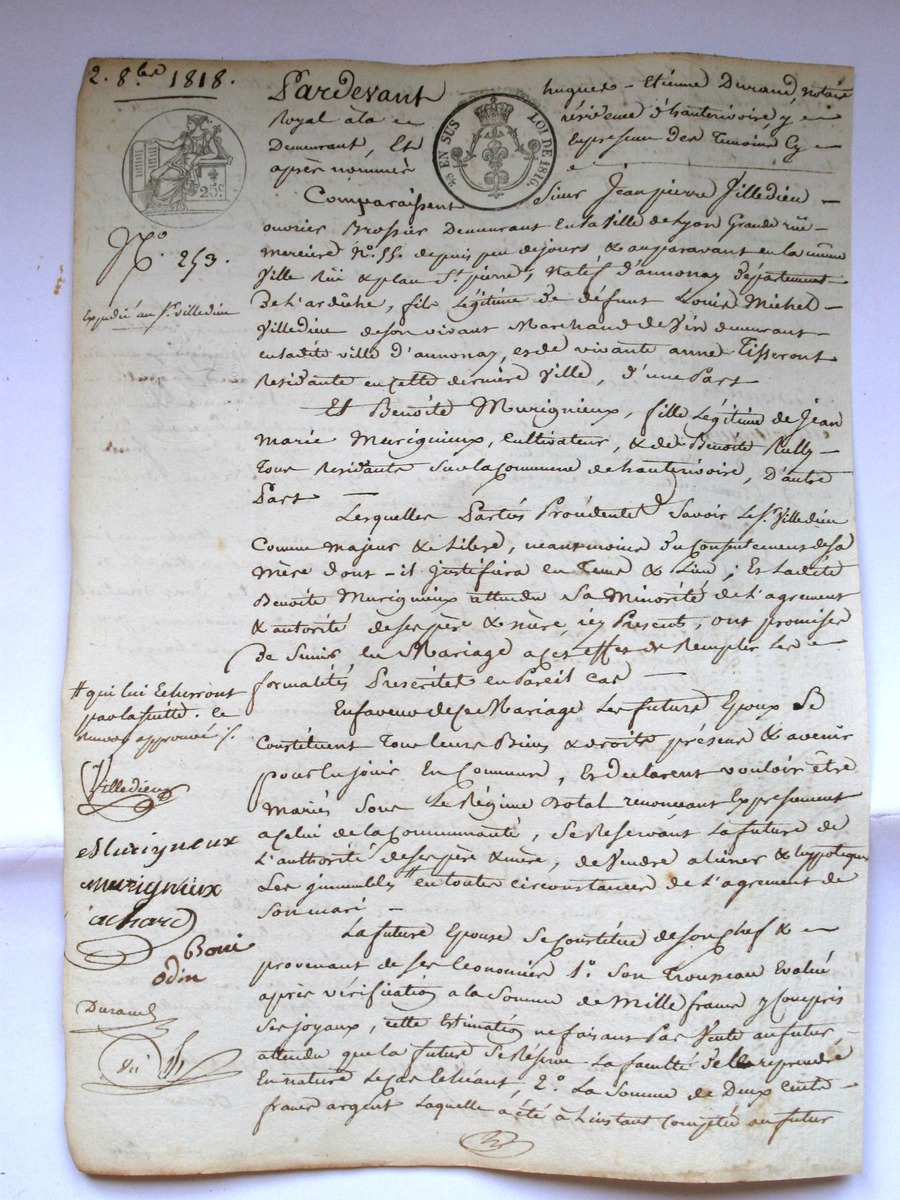 2. 8.bre 1818.
Pardevant hugues - Etienne Durand notaire
Royal à la résidence d'hauterivoire y
Demeurant, Et En presence des Temoins Cy
après nommés
EN SUS LOI DE 1816.
TIMBRE ROYAL
25c.
Comparaissent Sieur Jean pierre Villedieu
ouvrier Brossier Demeurant En la Ville de Lyon Grande rüe
merciere N.o 55. depuis peu de jours & auparavant en la même
Ville Rüe & place St. pierre, natif d'annonay departement
De L'ardêche, fils Légitime de défunt Louis Michel
Villedieu de son vivant Marchand de Vin demeurant
en ladite ville d'annonay, et de vivante anne Tisseront
Residante en cette derniere Ville, d'une Part
N.o 253.
Expédié au Sr. Villedieu
Et Benoite Murigneux, fille Légitime de Jean
Marie Murigneux, Cultivateur, & de Benoite Rully
Tous Residants Sur la Commune de hauterivoire, D'autre
Part
Lesquelles Parties Procédantes Savoir Le Sr. Villedieu
Comme majeur & Libre, neantmoins du Consentement de sa
Mère dont - il justifiera en Tems & Lieu; Et ladite
Benoite Murigneux attendu Sa Minorité de L'agrement
& autorité de ses père & mère, icy Presents, ont promis
de S'unir en Mariage à cet effet de Remplir Les
formalités Prescrites en Pareil Cas
En faveur de Ce Mariage Les futurs Epoux Se
Constituent Tous leurs Biens & droits présens & avenir
pour En jouir En Commun, Et declarent vouloir être
mariés Sous Le Régime dotal renonçant Expressement
à Celui de la Communauté, Se Reservant La future de
L'authorité de ses père & mère, de Vendre aliener & hypotequer
Les immeubles # en toutes circonstances de L'agrement de
Son mari. -
# qui lui Echerront
par la suitte. Ce
renvoi approuvé
Villedieu
Murigneux
Murigneux
achard
Boni
odin
Durand
La future Epouse Se Constitue de son Chef & en
provenant de Ses Economies 1.o Son Trousseau Evalué
après vérification à la Somme de Mille francs y Compris
Ses joyaux, cette Estimation ne faisant Pas Vente au futur
attendu que la future Se Réserve La faculté de le reprendre
En nature Le Cas Echéant, 2.o La Somme de Deux Cents
francs argent Laquelle a été à L'instant Comptée au futur